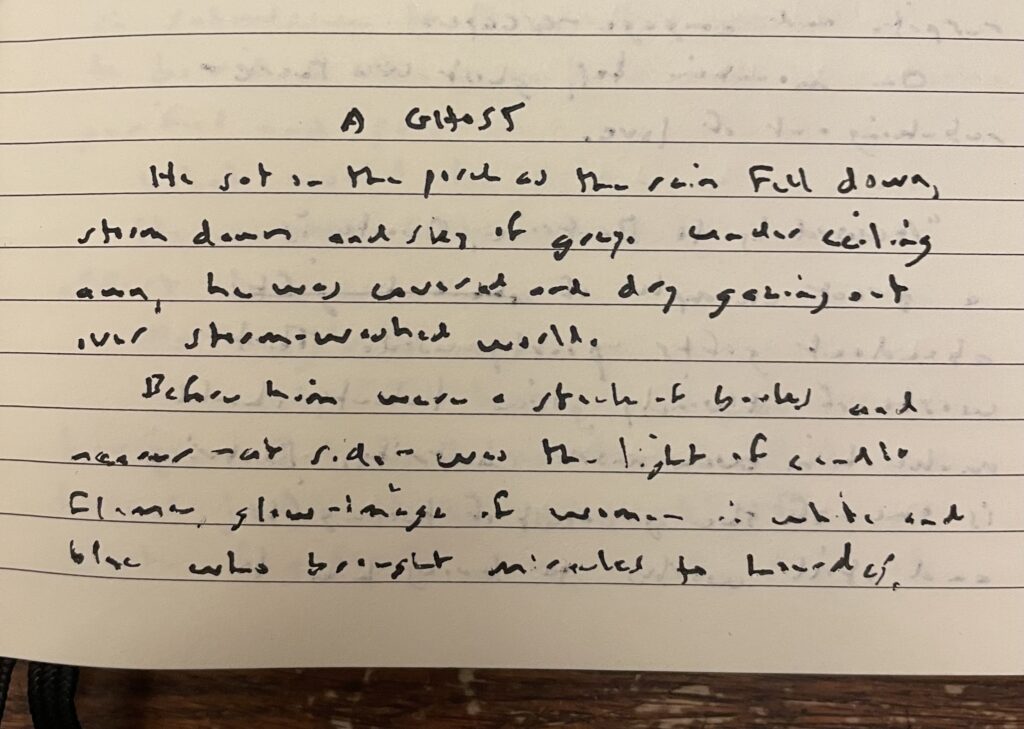 A GHOST
He sat on the porch as the rain fell down,
storm dawn and sky of grey. Under ceiling
awn, he was covered, and dry gazing out
over storm-washed world.
Before him were a stack of books and
nearer - at side - was the light of candle
flame, glow-image of woman in white and
blue who brought miracles to Lourdes.